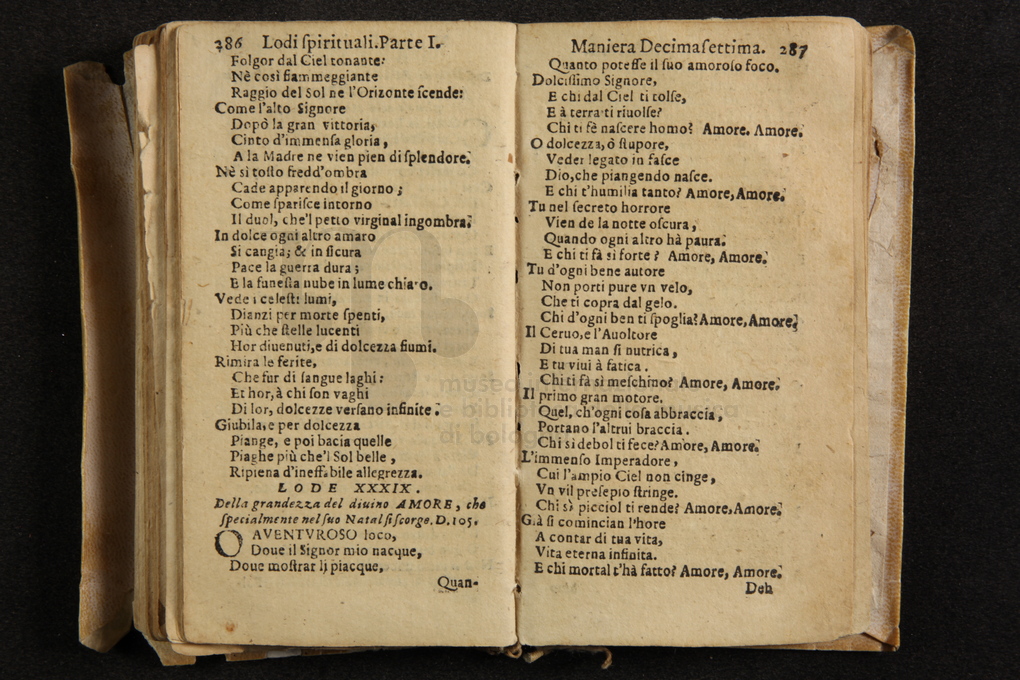 286 Lodi ſpirituali.Parte I.
Folgor dal Ciel tonante:
Nè così fiammeggiante
Raggio del Sol ne l'Orizonte ſcende:
Come l'alto Signore
Dopò la gran vittoria,
Cinto d'immenſa gloria,
A la Madre ne vien pien di ſplendore.
Nè sì toſto fredd'ombra
Cade apparendo il giorno;
Come ſpariſce intorno
Il duol, che'l petto virginal ingombra.
In dolce ogni altro amaro
Si cangia; & in ſicura
Pace la guerra dura;
E la funeſta nube in lume chiaro.
Vede i celeſti lumi,
Dianzi per morte ſpenti,
Più che ſtelle lucenti
Hor diuenuti,e di dolcezza fiumi.
Rimira le ferite,
Che fur di ſangue laghi:
Et hor,à chi ſon vaghi
Di lor, dolcezze verſano infinite.
Giubila,e per dolcezza
Piange, e poi bacia quelle
Piaghe più che'l Sol belle,
Ripiena d'ineffabile allegrezza.
LODE XXXIX.
Della grandezza del diuino AMORE, che
ſpecialmente nel ſuo Natal ſi ſcorge. D.105.
O AVENTVROSO loco,
Doue il Signor mio nacque,
Doue moſtrar li piacque,
Quan-
Maniera Decimaſettima. 287
Quanto poteſſe il ſuo amoroſo foco.
Dolciſſimo Signore,
E chi dal Ciel ti tolſe,
E à terra ti riuolſe?
Chi ti fè naſcere homo? Amore. Amore.
O dolcezza,ò ſtupore,
Veder legato in faſce
Dio,che piangendo naſce.
E chi t'humilia tanto? Amore,Amore.
Tu nel ſecreto horrore
Vien de la notte oſcura,
Quando ogni altro hà paura.
E chi ti fà sì forte? Amore, Amore.
Tu d'ogni bene autore
Non porti pure vn velo,
Che ti copra dal gelo.
Chi d'ogni ben ti ſpoglia?Amore,Amore.
Il Ceruo,e l'Auoltore
Di tua man ſi nutrica,
E tu viui à fatica.
Chi ti fà sì meſchino? Amore, Amore.
Il primo gran motore.
Quel, ch'ogni coſa abbraccia,
Portano l'altrui braccia.
Chi sì debol ti fece?Amore, Amore.
L'immenſo Imperadore,
Cui l'ampio Ciel non cinge,
Vn vil preſepio ſtringe.
Chi sì picciol ti rende? Amore,Amore.
Già ſi comincian l'hore
A contar di tua vita,
Vita eterna infinita.
E chi mortal t'hà fatto? Amore, Amore.
Deh